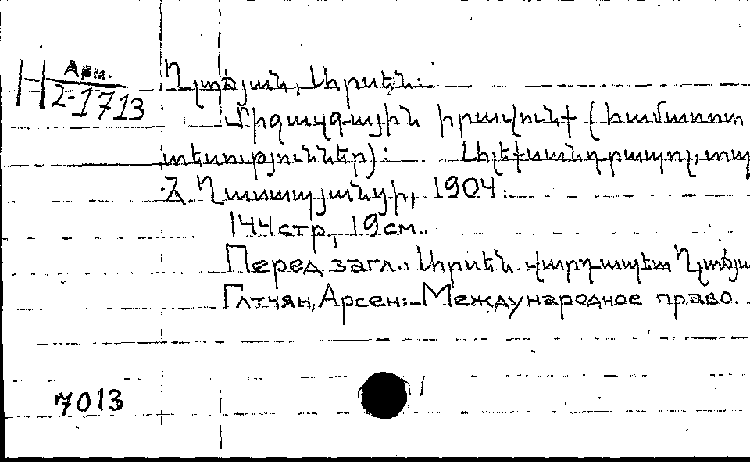 Арм.
Н 2-1713
Ղլտճյան, Արսեն:
Միջազգային իրավունք (համառոտ
տեսություններ): Ալեքսանդրապոլ, տպ
Հ. Ղասապյանցի, 1904.
144 стр, 19 см.
Перед загл.: Արսեն վարդապետ Ղլտճյա
Глтчян, Арсен: Международное право.
7013